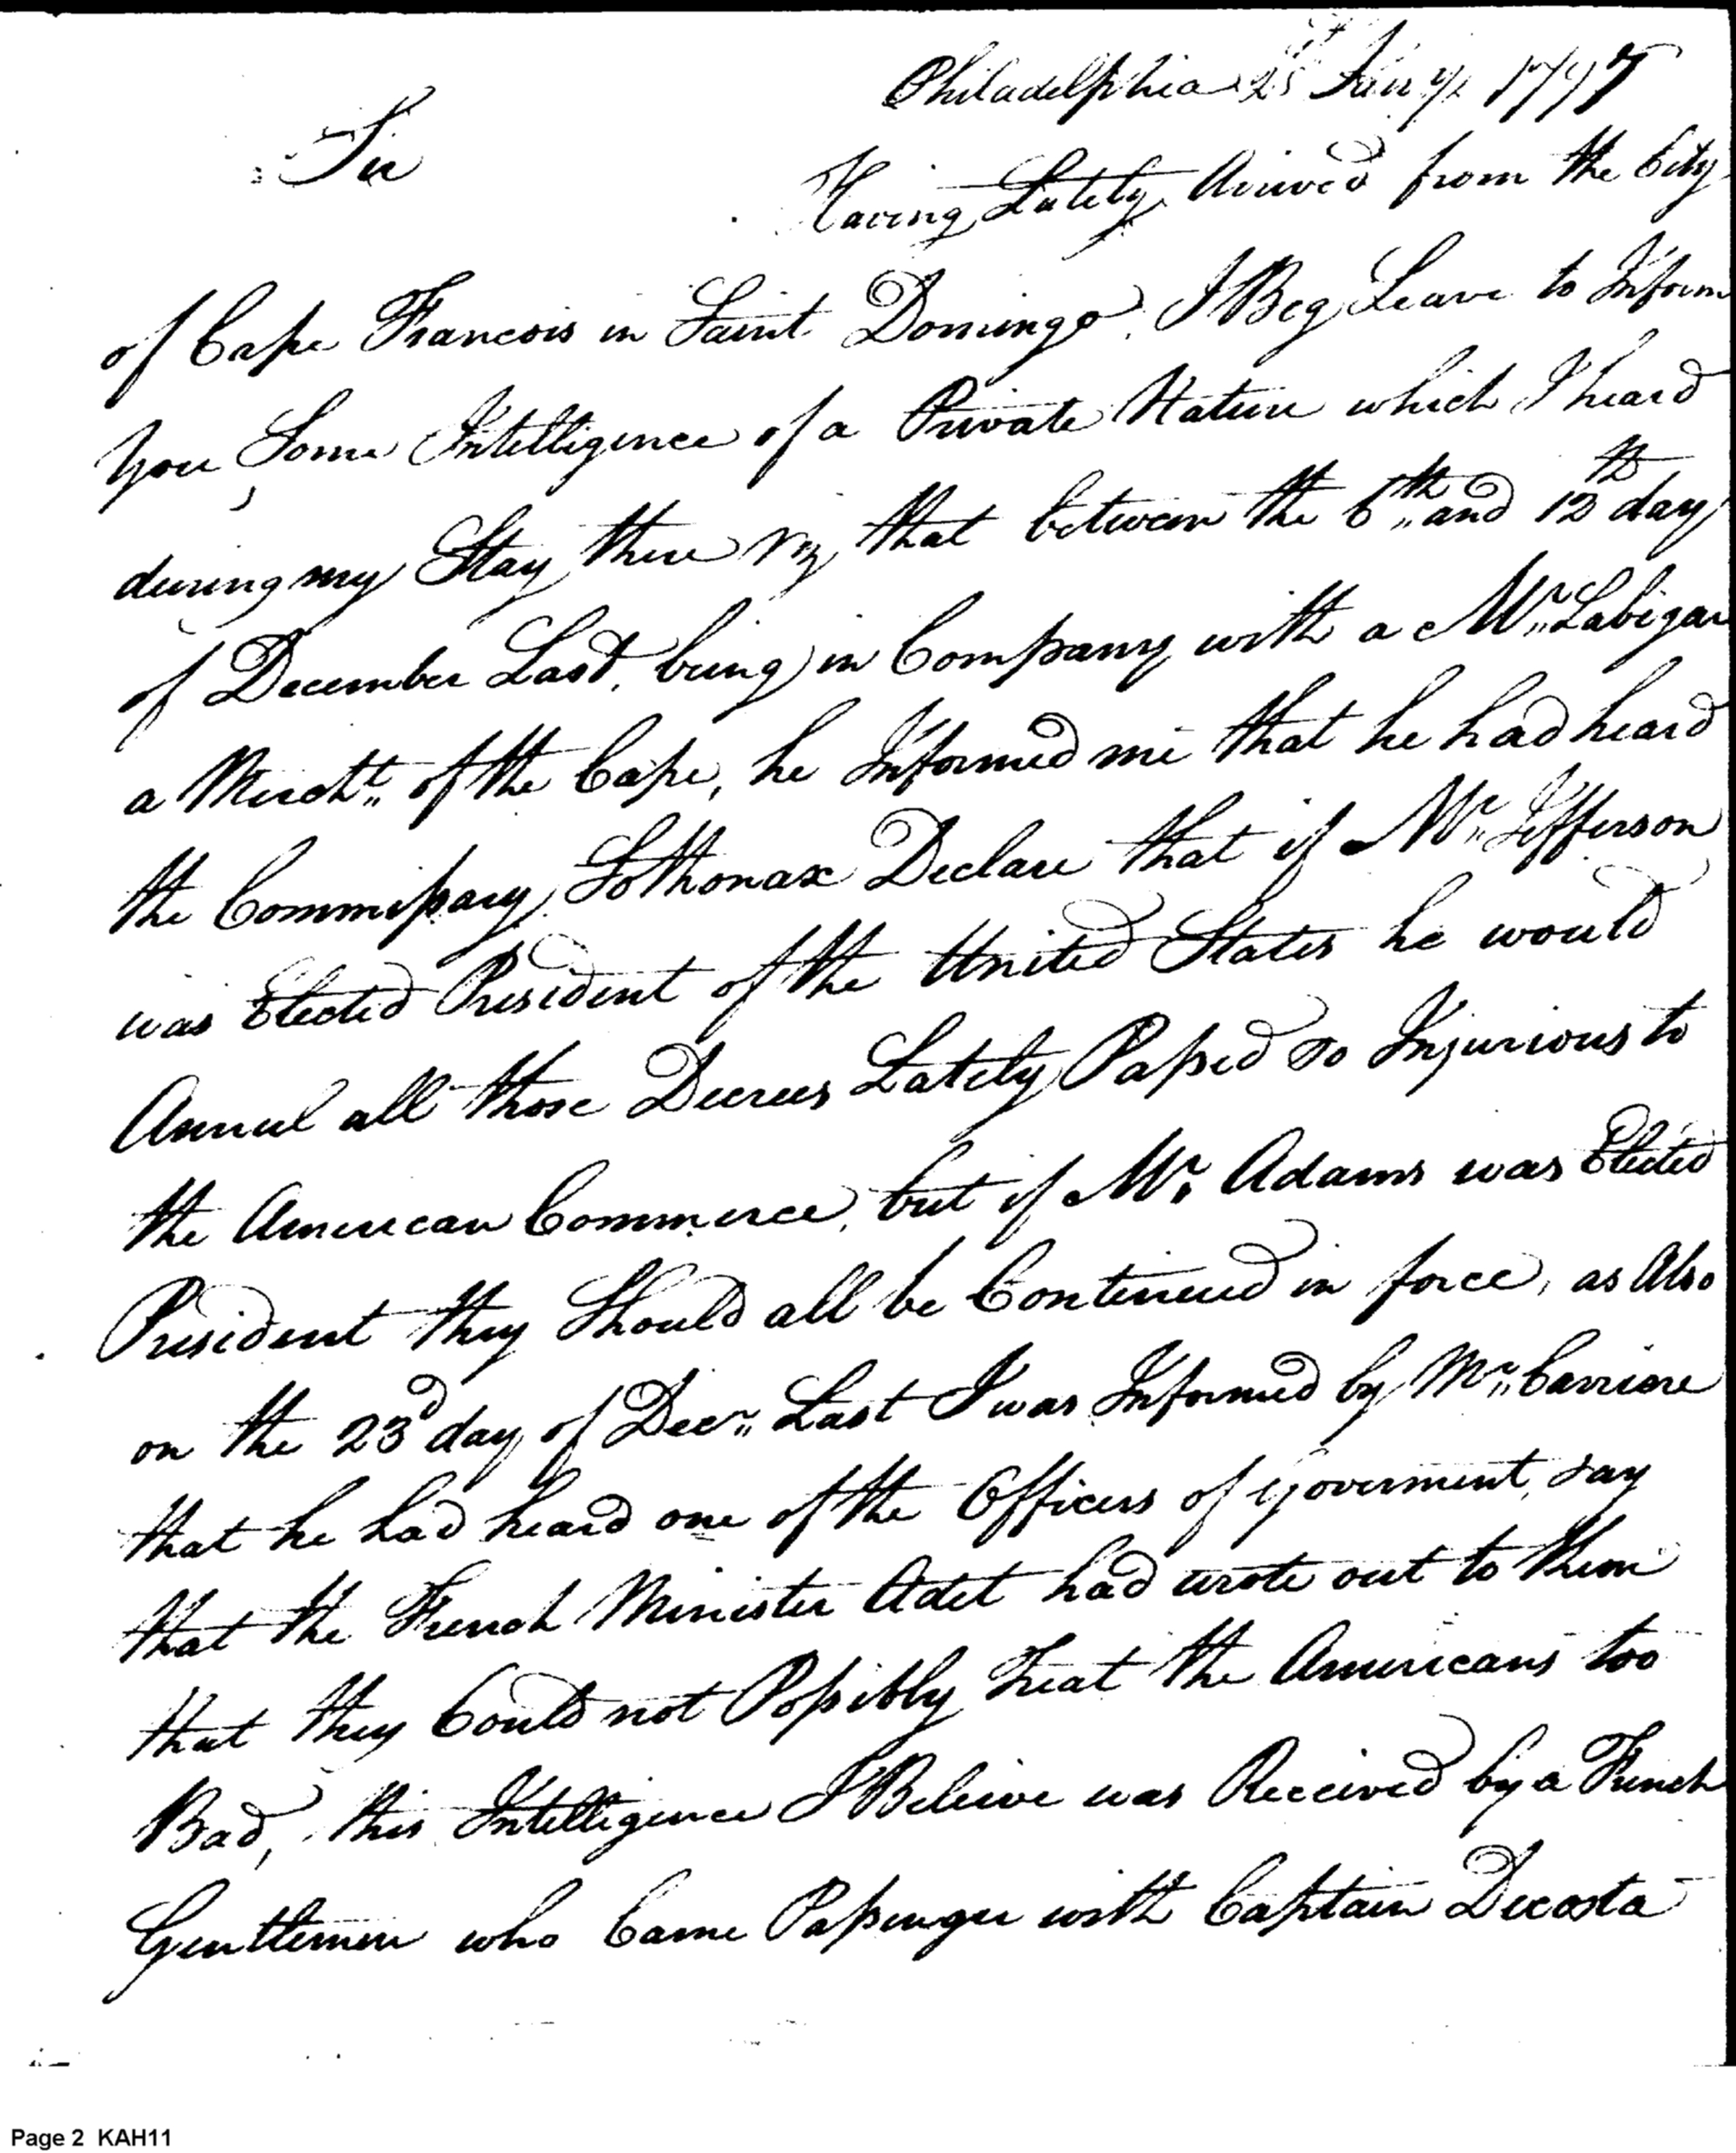 Philadelphia Jany 1797
Sir
Having Lately Arived from the City
of Cape Francois in Saint Domingo. I Beg Leave to Inform
you Some Intelligence of a Private Nature which I heard
during my Stay there viz, that between the 6th and 12th day
of December Last, being in Company with a Mr Labigar
a Mercht of the Cape, he Informed me that he had heard
the Commissary Sothonax Declare that if Mr Jefferson
was Elected President of the United States he would
Annul all those Decrees Lately Passed so Injurious to
the American Commerce, but if Mr Adams was Elected
President they Should all be Continued in force, as Also
on the 23d day of Decr Last I was Informed by Mr Carriere
that he had heard one of the Officers of Goverment, say
that the French Minister Adet had wrote out to them
that they Could not Possibly Treat the Americans too
Bad, this Intelligence I Beleive was Received by a French
Gentlemen who Came Passenger with Captain Decosta
Page 2 KAH11